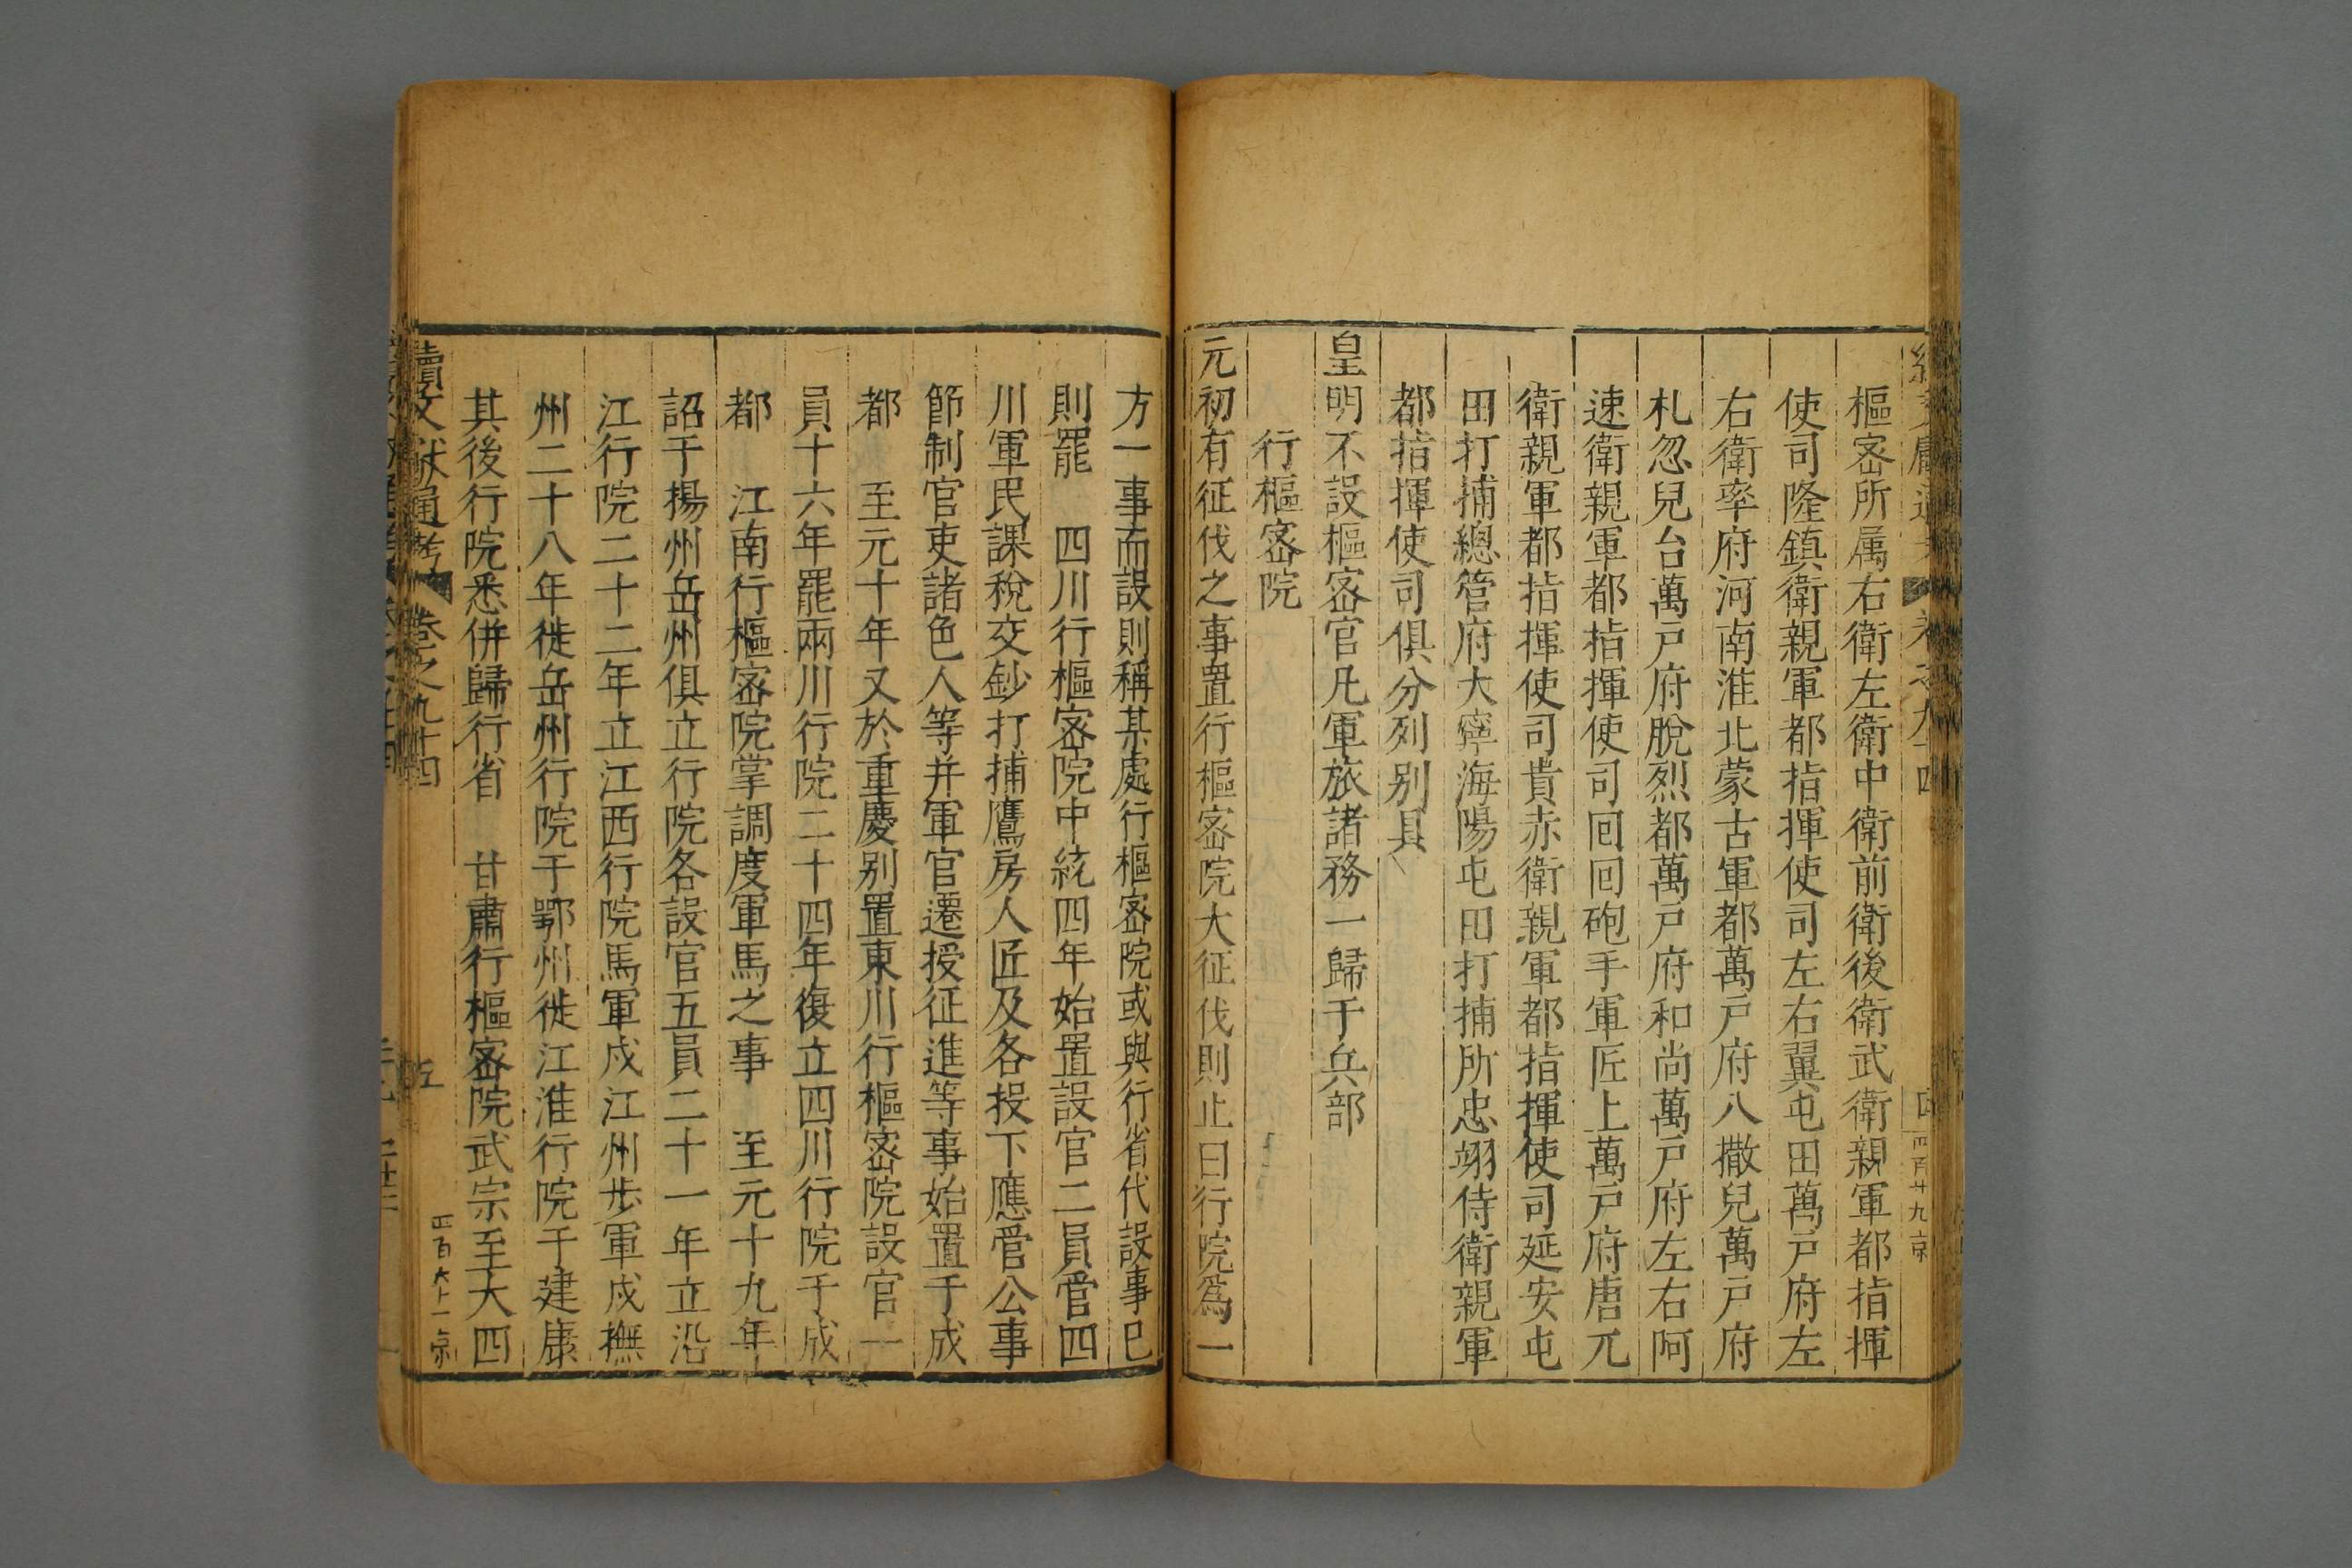 樞密所属右衛左衛中衛前衛後衛武衛親軍都指揮
使司隆鎮衛親軍都指揮使司左右翼屯田萬戸府左
右衛率府河南淮北蒙古軍都萬戸府八撒兒萬戸府
札忽兒台萬戸府脫烈都萬戸府和尚萬戸府左右阿
速衛親軍都指揮使司回回砲手軍匠上萬戸府唐兀
衛親軍都指揮使司貴赤衛親軍都指揮使司延安屯
田打捕總管府大寧海陽屯田打捕所忠翊侍衛親軍
都指揮使司俱分列別具
皇明不設樞密官凡軍旅諸務一歸于兵部
行樞密院
元初有征伐之事置行樞密院大征伐則止曰行院爲一
方一事而設則稱某處行樞密院或與行省代設事已
則罷 四川行樞密院中統四年始置設官二員管四
川軍民課稅交鈔打捕鷹房人匠及各投下應管公事
節制官吏諸色人等并軍官遷授征進等事始置于成
都 至元十年又於重慶別置東川行樞密院設官一
員十六年罷兩川行院二十四年復立四川行院于成
都 江南行樞密院掌調度軍馬之事 至元十九年
詔于揚州岳州俱立行院各設官五員二十一年立沿
江行院二十二年立江西行院馬軍戍江州步軍戍撫
州二十八年徙岳州行院于鄂州徙江淮行院于建康
其後行院悉併歸行省 甘肅行樞密院武宗至大四
續文獻通考 卷之九十四